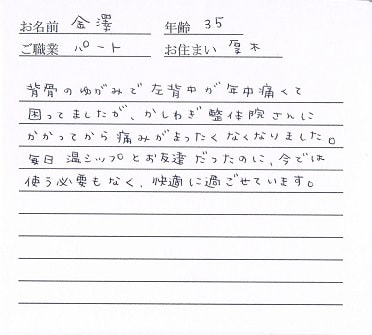 お名前 金澤 年齢 35
ご職業 パート お住まい 厚木
背骨のゆがみで左背中が年中痛くて
困ってましたが、かしわぎ整体院さんに
かかってから痛みがまったくなくなりました。
毎日温シップとお友達だったのに、今では
使う必要もなく、快適に過ごせています。